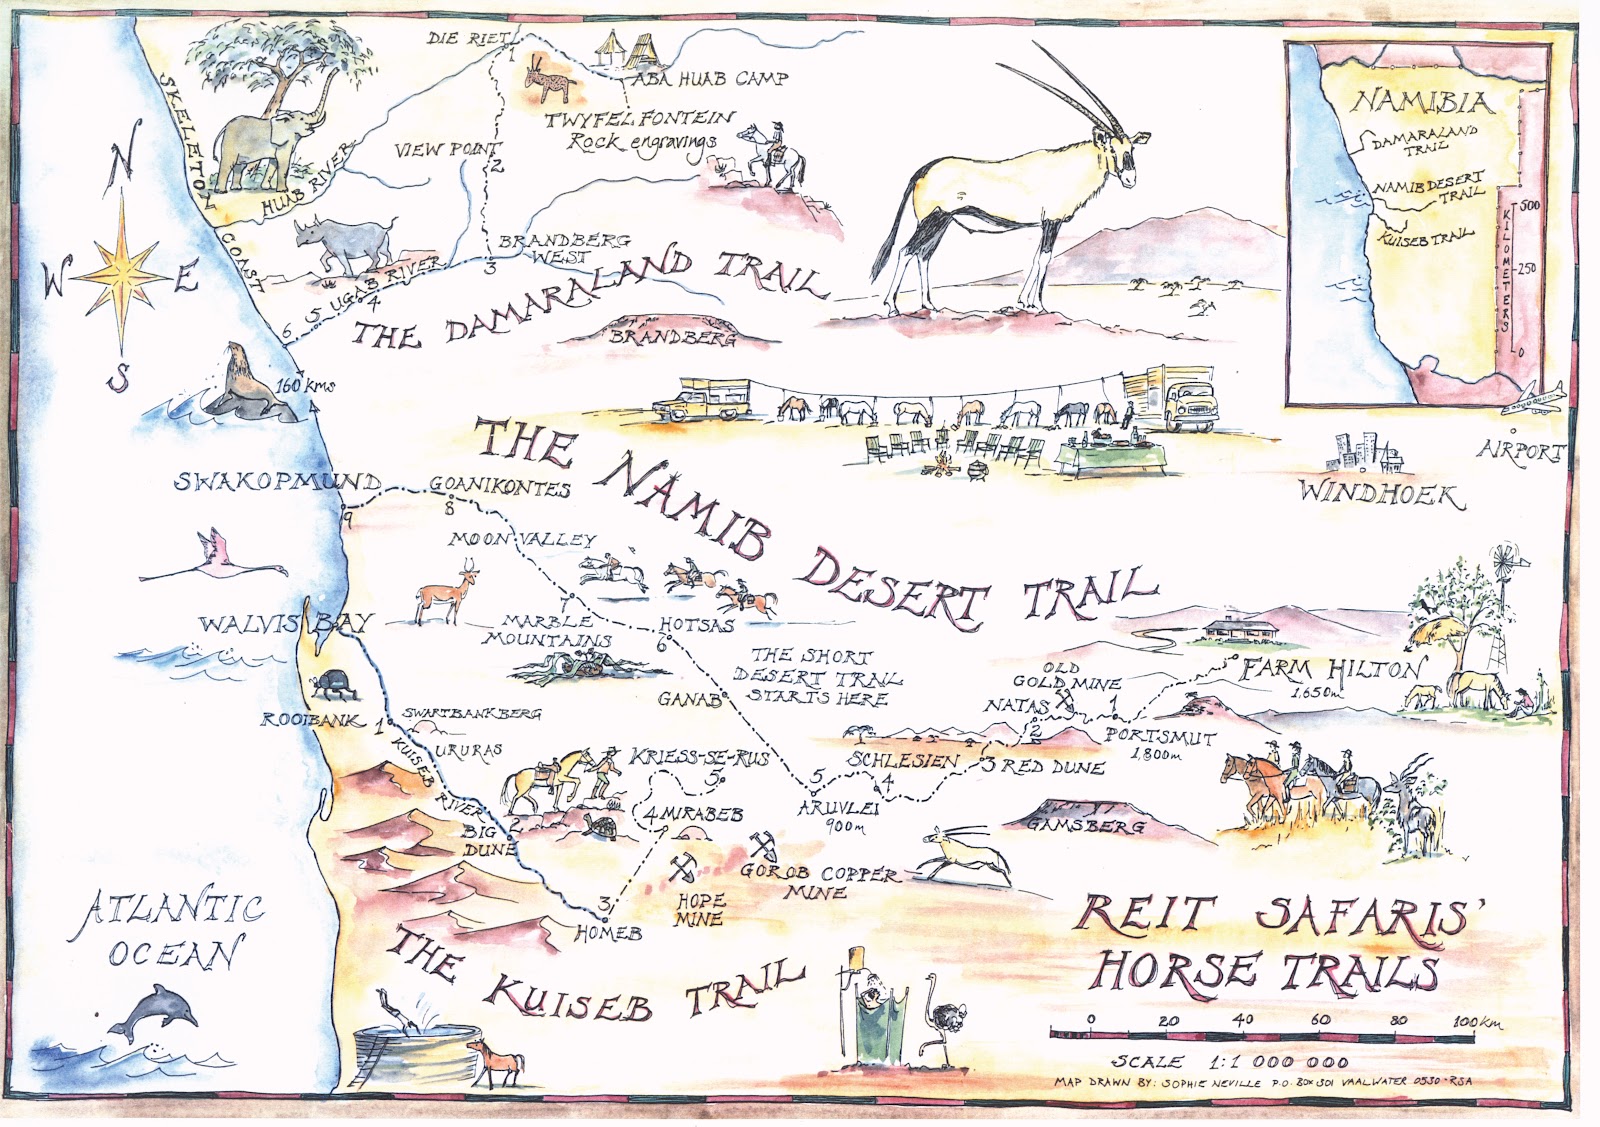 DIE RIET
1
ABA HUAB CAMP
TWYFELFONTEIN
Rock engravings
SKELETON
COAST
HUAB RIVER
VIEW POINT
2
BRANDBERG
WEST
3
UGAB RIVER
4
5
6
THE DAMARALAND TRAIL
BRANDBERG
N
W
E
S
160 kms
NAMIBIA
DAMARALAND
TRAIL
NAMIB DESERT
TRAIL
KUISEB TRAIL
500
250
0
KILOMETERS
AIRPORT
WINDHOEK
THE NAMIB DESERT TRAIL
SWAKOPMUND
9
GOANIKONTES
8
MOON VALLEY
7
MARBLE
MOUNTAINS
HOTSAS
6
WALVIS BAY
THE SHORT
DESERT TRAIL
STARTS HERE
GANAB
OLD
GOLD MINE
NATAS
2
1
FARM HILTON
1,650m
PORTSMUT
1,800m
ROOIBANK
1
SWARTBANKBERG
URURAS
KUISEB RIVER
BIG
DUNE
2
KRIESS-SE-RUS
5
4 MIRABEB
SCHLESIEN
4
3 RED DUNE
5
ARUVLEI
900m
GAMSBERG
GOROB COPPER
MINE
HOPE
MINE
3
HOMEB
THE KUISEB TRAIL
ATLANTIC
OCEAN
REIT SAFARIS'
HORSE TRAILS
0 20 40 60 80 100km
SCALE 1:1 000 000
MAP DRAWN BY: SOPHIE NEVILLE P.O. BOX 301 VAALWATER 0530 · RSA